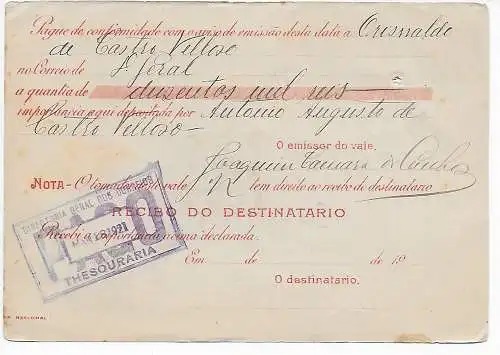 Pague de conformidade com o aviso de emissão desta data a
de Castro Velloso
no Correio de
a quantia de dusentos mil reis
importancia aqui depositada por Antonio Augusto de
Castro Velloso
O emissor do vale,
Joaquim
NOTA - O tomador do vale tem direito ao recibo de destinatario
RECIBO DO DESTINATARIO
Recebi a importancia acima declarada.
Em de de 19
O destinatario,
DIRECTORIA GERAL DOS CORREIOS
PAGO
1921
THESOURARIA
NACIONAL